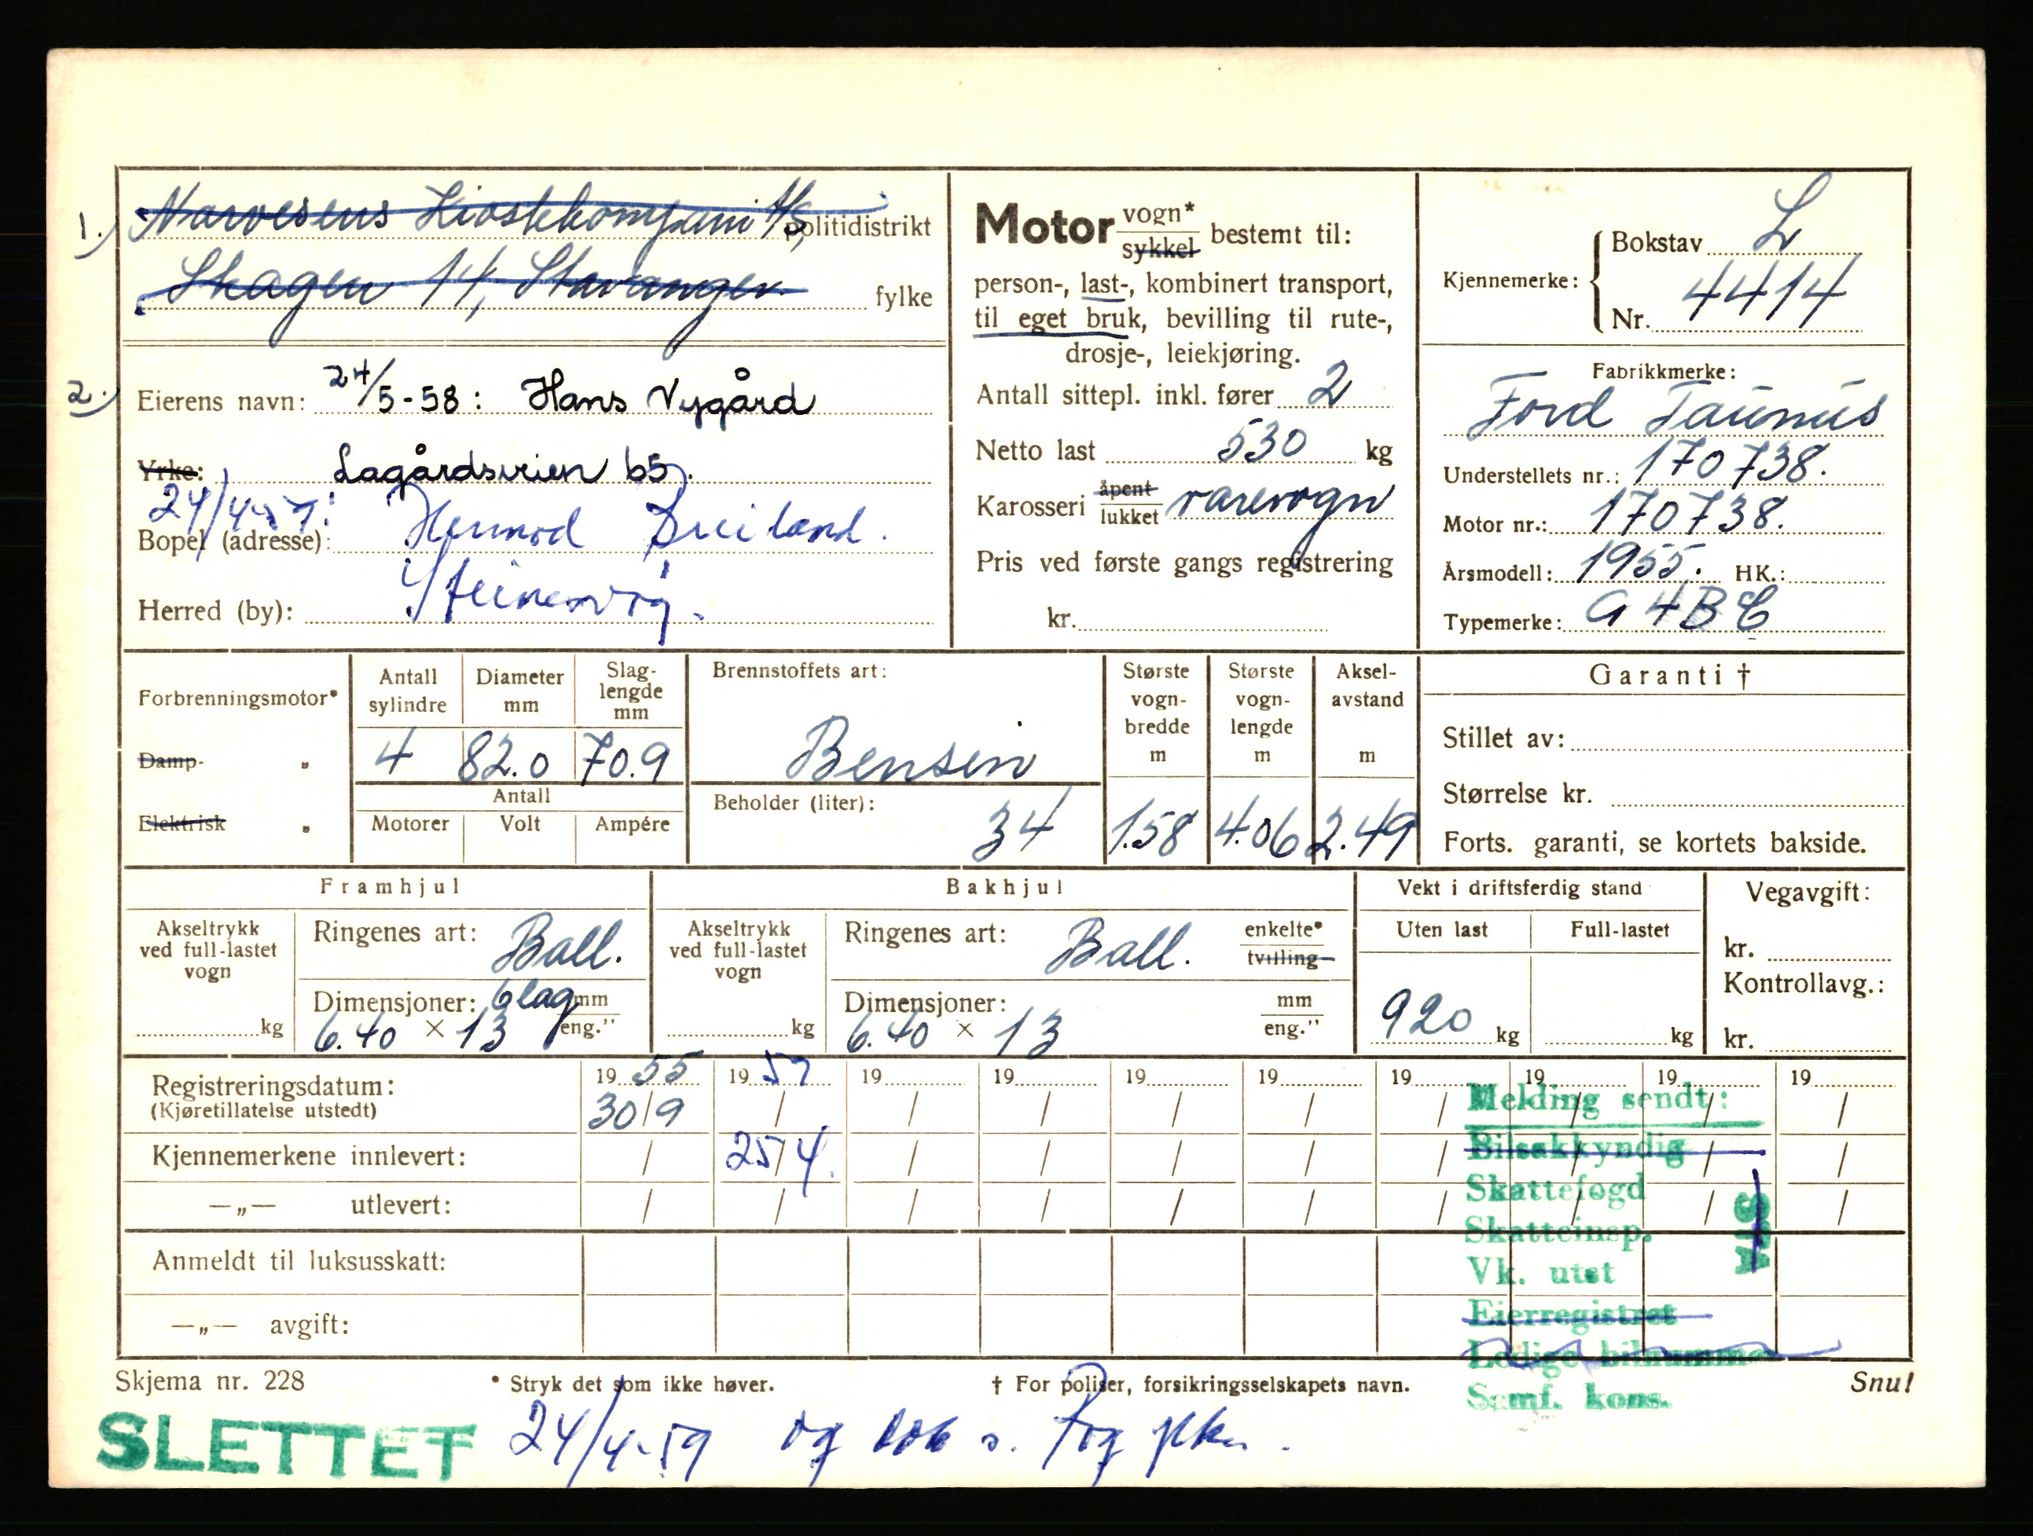 1.) Narvesens Kioskkompani A/S, politidistrikt
Skagen 14, Stavanger. fylke
2.) Eierens navn: 24/5-58: Hans Nygård
Yrke: Lagårdsveien 65.
24/4-59:
Bopel (adresse): Hermod Breiland.
Herred (by):
Motor vogn* / sykkel bestemt til:
person-, last-, kombinert transport,
til eget bruk, bevilling til rute-,
drosje-, leiekjøring.
Antall sittepl. inkl. fører 2
Netto last 530 kg
Karosseri åpent / lukket varevogn
Pris ved første gangs registrering
kr.
Kjennemerke: Bokstav L
Nr. 4414
Fabrikkmerke:
Ford Taunus
Understellets nr.: 170738.
Motor nr.: 170738.
Årsmodell: 1955. HK.:
Typemerke: G4BC
Forbrenningsmotor*
Damp- „
Elektrisk „
Antall sylindre 4
Diameter mm 82.0
Slaglengde mm 70.9
Antall
Motorer Volt Ampére
Brennstoffets art:
Bensin
Beholder (liter): 34
Største vognbredde m 1.58
Største vognlengde m 4.06
Akselavstand m 2.49
Garanti †
Stillet av:
Størrelse kr.
Forts. garanti, se kortets bakside.
Framhjul
Akseltrykk ved full-lastet vogn kg
Ringenes art: Ball.
Dimensjoner: 6 lag mm
6.40 × 13 eng."
Bakhjul
Akseltrykk ved full-lastet vogn kg
Ringenes art: Ball. enkelte* tvilling
Dimensjoner: mm
6.40 × 13 eng."
Vekt i driftsferdig stand
Uten last Full-lastet
920 kg kg
Vegavgift:
kr.
Kontrollavg.:
kr.
Registreringsdatum: 19 55 19 59 19 19 19 19 19 19 19 19
(Kjøretillatelse utstedt) 30/9 / / / / / / / / /
Kjennemerkene innlevert: / 25/4. / / / / / / / /
—„— utlevert: / / / / / / / / / /
Anmeldt til luksusskatt:
—„— avgift:
Melding sendt:
Bilsakkyndig
Skattefogd
Skatteinsp.
Vk. utst
Eierregistret
Ledige bilnumme
Samf. kons.
Skjema nr. 228 * Stryk det som ikke høver. † For poliser, forsikringsselskapets navn. Snu!
SLETTET 24/4-59 og